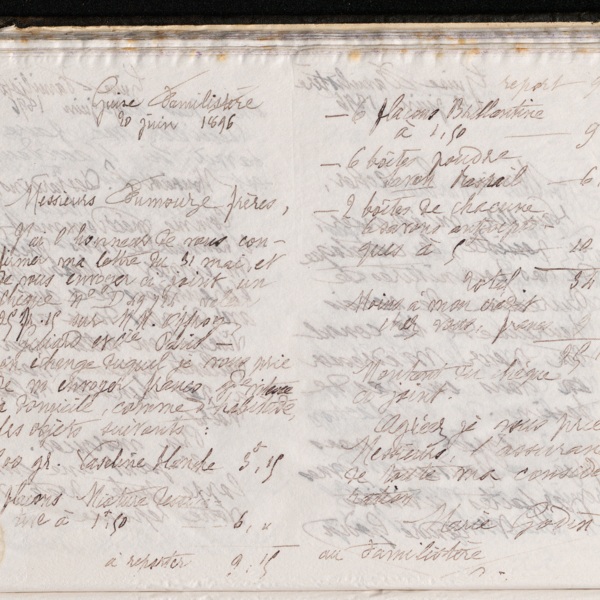 Guise Familistère
20 juin 1896
Messieurs Fumouze frères,
J'ai l'honneur de vous con-
firmer ma lettre du 31 mai et
de vous envoyer ci joint un
chèque
sur
et Cie Paris —
en échange duquel je vous prie
de m'envoyer franco
à domicile, comme d'habitude,
les objets suivants :
00 gr. Vaseline blanche 3f,15
flacons
à 1f50 6, "
à reporter 9,15
report 9
— 6 flacons Brillantine
à 1,50 — 9
— 6 boîtes poudre
— 6
— 2 boîtes de chacune
à savons antisepti-
ques à 5 10
Total 34
Moins à mon crédit
chez vous, francs
Montant du chèque
ci joint.
Agréez je vous prie
Messieurs, l'assuran
de toute ma considé
ration
Marie Godin
au Familistère